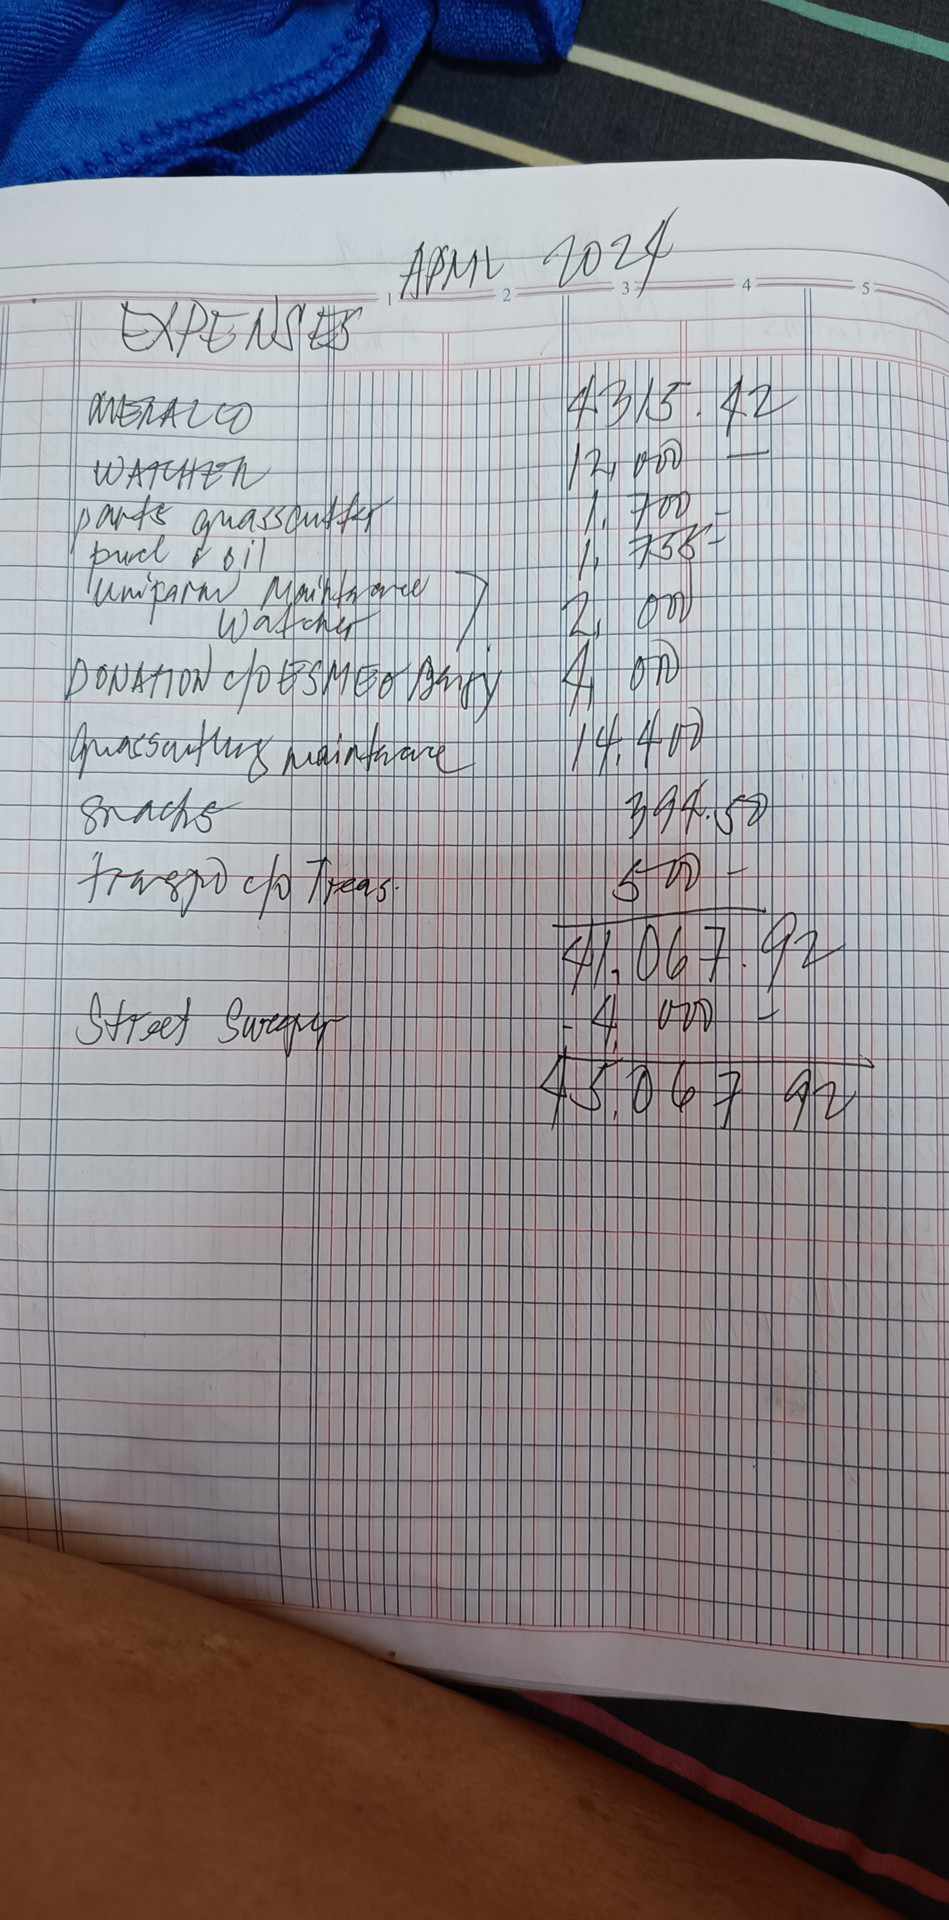 APRIL 2024
1 2 3 4 5
EXPENSES
MERALCO 4315.42
WATCHER 12,000 —
parts grasscutter 1,700 -
fuel & oil 1,758 -
Uniform Maintenance
Watcher 2,000
DONATION c/o ESMEO Brgy 4,000
grasscutting maintenance 14,400
Snacks 394.50
transpo c/o Treas. 500 -
41,067.92
Street Sweeper 4,000 -
45,067 92